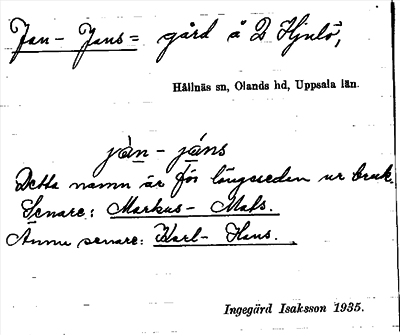 Jan - Jans = gård å D Hjulö,
Hållnäs sn, Olands hd, Uppsala län.
jàn - jáns
Detta namn är för längseden ur bruk.
Senare: Markus - Mats.
Ännu senare: Karl - Hans.
Ingegärd Isaksson 1935.